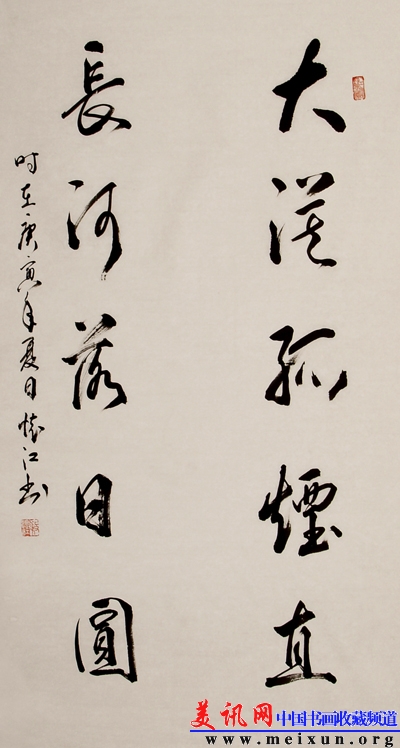 大漠孤煙直
長河落日圓
时在庚寅年夏日懷江书
美讯网中国书画收藏频道
www.meixun.org